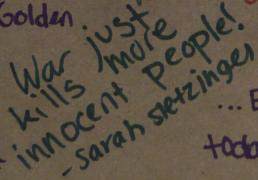 Golden
War just
kills more
innocent people!
- sarah sletzinger
... E
toda